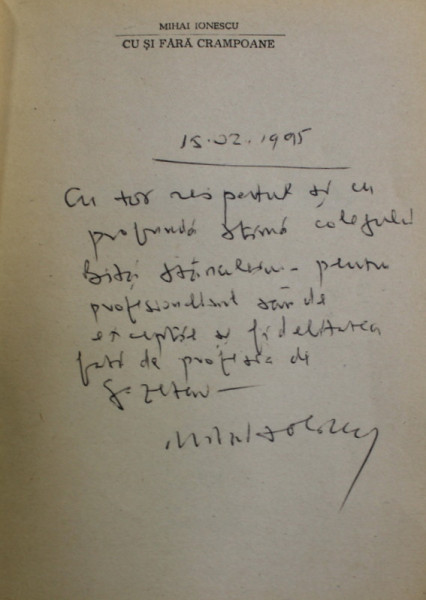 MIHAI IONESCU
CU ȘI FĂRĂ CRAMPOANE
15.02.1995
Cu tot respectul și cu
profundă stimă colegului
Stănculescu – pentru
profesionalismul său de
excepție și fidelitatea
față de profesia de
gazetar –
Mihai Ionescu